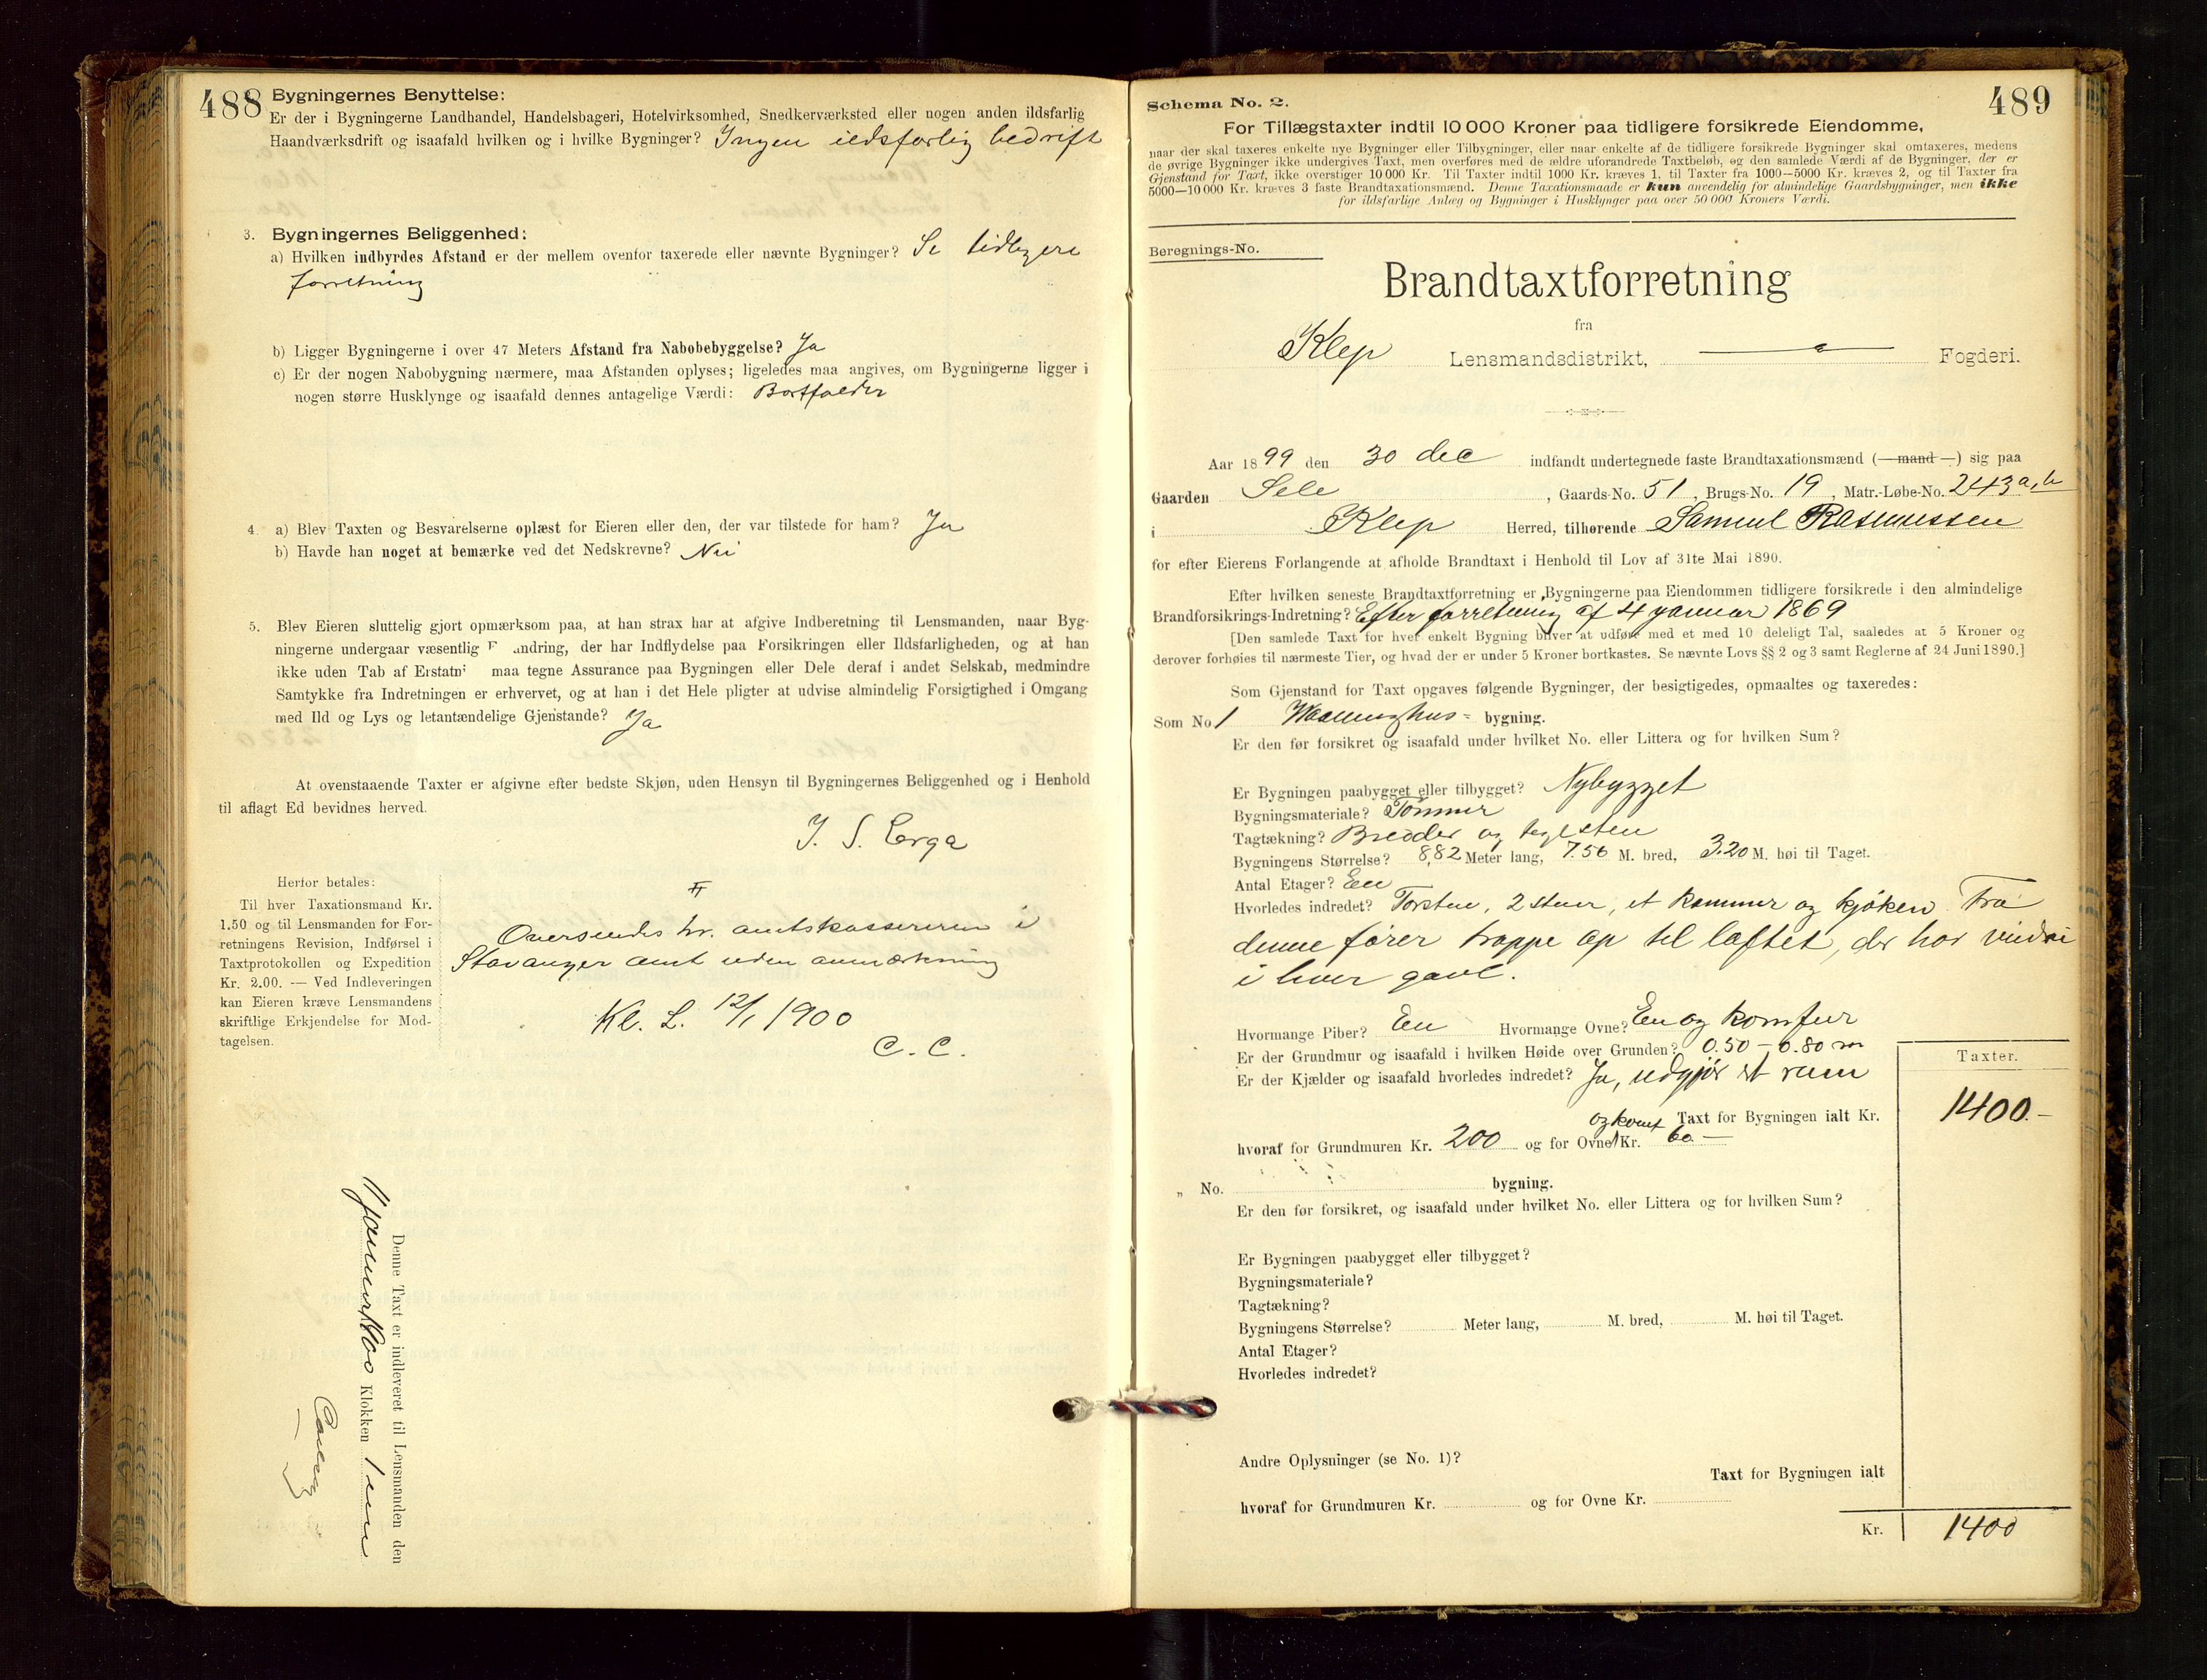 488
Bygningernes Benyttelse:
Er der i Bygningerne Landhandel, Handelsbageri, Hotelvirksomhed, Snedkerværksted eller nogen anden ildsfarlig
Haandværksdrift og isaafald hvilken og i hvilke Bygninger? Ingen ildsfarlig bedrift
3. Bygningernes Beliggenhed:
a) Hvilken indbyrdes Afstand er der mellem ovenfor taxerede eller nævnte Bygninger? Se tidligere
forretning
b) Ligger Bygningerne i over 47 Meters Afstand fra Nabobebyggelse? Ja
c) Er der nogen Nabobygning nærmere, maa Afstanden oplyses; ligeledes maa angives, om Bygningerne ligger i
nogen større Husklynge og isaafald dennes antagelige Værdi: Bortfalder
4. a) Blev Taxten og Besvarelserne oplæst for Eieren eller den, der var tilstede for ham? Ja
b) Havde han noget at bemærke ved det Nedskrevne? Nei
5. Blev Eieren sluttelig gjort opmærksom paa, at han strax har at afgive Indberetning til Lensmanden, naar Byg-
ningerne undergaar væsentlig F andring, der har Indflydelse paa Forsikringen eller Ildsfarligheden, og at han
ikke uden Tab af Erstatni maa tegne Assurance paa Bygningen eller Dele deraf i andet Selskab, medmindre
Samtykke fra Indretningen er erhvervet, og at han i det Hele pligter at udvise almindelig Forsigtighed i Omgang
med Ild og Lys og letantændelige Gjenstande? Ja
At ovenstaaende Taxter er afgivne efter bedste Skjøn, uden Hensyn til Bygningernes Beliggenhed og i Henhold
til aflagt Ed bevidnes herved.
J. S. Erga
Herfor betales:
Til hver Taxationsmand Kr.
1.50 og til Lensmanden for For-
retningens Revision, Indførsel i
Taxtprotokollen og Expedition
Kr. 2.00. — Ved Indleveringen
kan Eieren kræve Lensmandens
skriftlige Erkjendelse for Mod-
tagelsen.
Oversendes hr. amtskassereren i
Stavanger amt uden anmærkning
Kl. L. 12/1 1900
C. C.
Denne Taxt er indleveret til Lensmanden den
11 januar 1900 Klokken 1 em
489
Schema No. 2.
For Tillægstaxter indtil 10 000 Kroner paa tidligere forsikrede Eiendomme,
naar der skal taxeres enkelte nye Bygninger eller Tilbygninger, eller naar enkelte af de tidligere forsikrede Bygninger skal omtaxeres, medens
de øvrige Bygninger ikke undergives Taxt, men overføres med de ældre uforandrede Taxtbeløb, og den samlede Værdi af de Bygninger, der er
Gjenstand for Taxt, ikke overstiger 10 000 Kr. Til Taxter indtil 1000 Kr. kræves 1, til Taxter fra 1000—5000 Kr. kræves 2, og til Taxter fra
5000—10 000 Kr. kræves 3 faste Brandtaxationsmænd. Denne Taxationsmaade er kun anvendelig for almindelige Gaardsbygninger, men ikke
for ildsfarlige Anlæg og Bygninger i Husklynger paa over 50 000 Kroners Værdi.
Beregnings-No.
Brandtaxtforretning
fra
Klep Lensmandsdistrikt, — Fogderi.
Aar 1899 den 30 dec indfandt undertegnede faste Brandtaxationsmænd (—mand—) sig paa
Gaarden Sele, Gaards-No. 51, Brugs-No. 19, Matr.-Løbe-No. 243 a,b
i Klep Herred, tilhørende Samuel Rasmussen
for efter Eierens Forlangende at afholde Brandtaxt i Henhold til Lov af 31te Mai 1890.
Efter hvilken seneste Brandtaxtforretning er Bygningerne paa Eiendommen tidligere forsikrede i den almindelige
Brandforsikrings-Indretning? Efter forretning af 4 januar 1869
[Den samlede Taxt for hver enkelt Bygning bliver at udføre med et med 10 deleligt Tal, saaledes at 5 Kroner og
derover forhøies til nærmeste Tier, og hvad der er under 5 Kroner bortkastes. Se nævnte Lovs §§ 2 og 3 samt Reglerne af 24 Juni 1890.]
Som Gjenstand for Taxt opgaves følgende Bygninger, der besigtigedes, opmaaltes og taxeredes:
Som No 1 Vaaningshus- bygning.
Er den før forsikret og isaafald under hvilket No. eller Littera og for hvilken Sum?
Er Bygningen paabygget eller tilbygget? Nybygget
Bygningsmateriale? Tømmer
Tagtækning? Bredder og teglsten
Bygningens Størrelse? 8,82 Meter lang, 7.56 M. bred, 3.20 M. høi til Taget.
Antal Etager? En
Hvorledes indredet? Forstue, 2 stuer, et kammer og kjøken. Fra
denne fører trappe op til loftet, der har vindu
i hver gavl.
Hvormange Piber? En Hvormange Ovne? En og komfur
Er der Grundmur og isaafald i hvilken Høide over Grunden? 0.50 — 0.80 m
Er der Kjælder og isaafald hvorledes indredet? Ja, udgjør et rum
Taxter.
Taxt for Bygningen ialt Kr. 1400.—
hvoraf for Grundmuren Kr. 200 og for Ovne og komf Kr. 60.—
„ No. bygning.
Er den før forsikret, og isaafald under hvilket No. eller Littera og for hvilken Sum?
Er Bygningen paabygget eller tilbygget?
Bygningsmateriale?
Tagtækning?
Bygningens Størrelse? Meter lang, M. bred, M. høi til Taget.
Antal Etager?
Hvorledes indredet?
Andre Oplysninger (se No. 1)?
Taxt for Bygningen ialt
hvoraf for Grundmuren Kr. og for Ovne Kr.
Kr. 1400